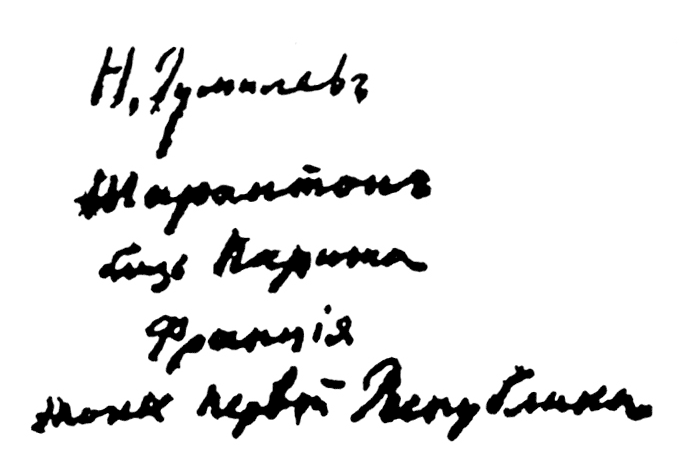 Н. Гумилевъ
Шарантонъ
близь Парижа
Франція
эпоха первой Республики.